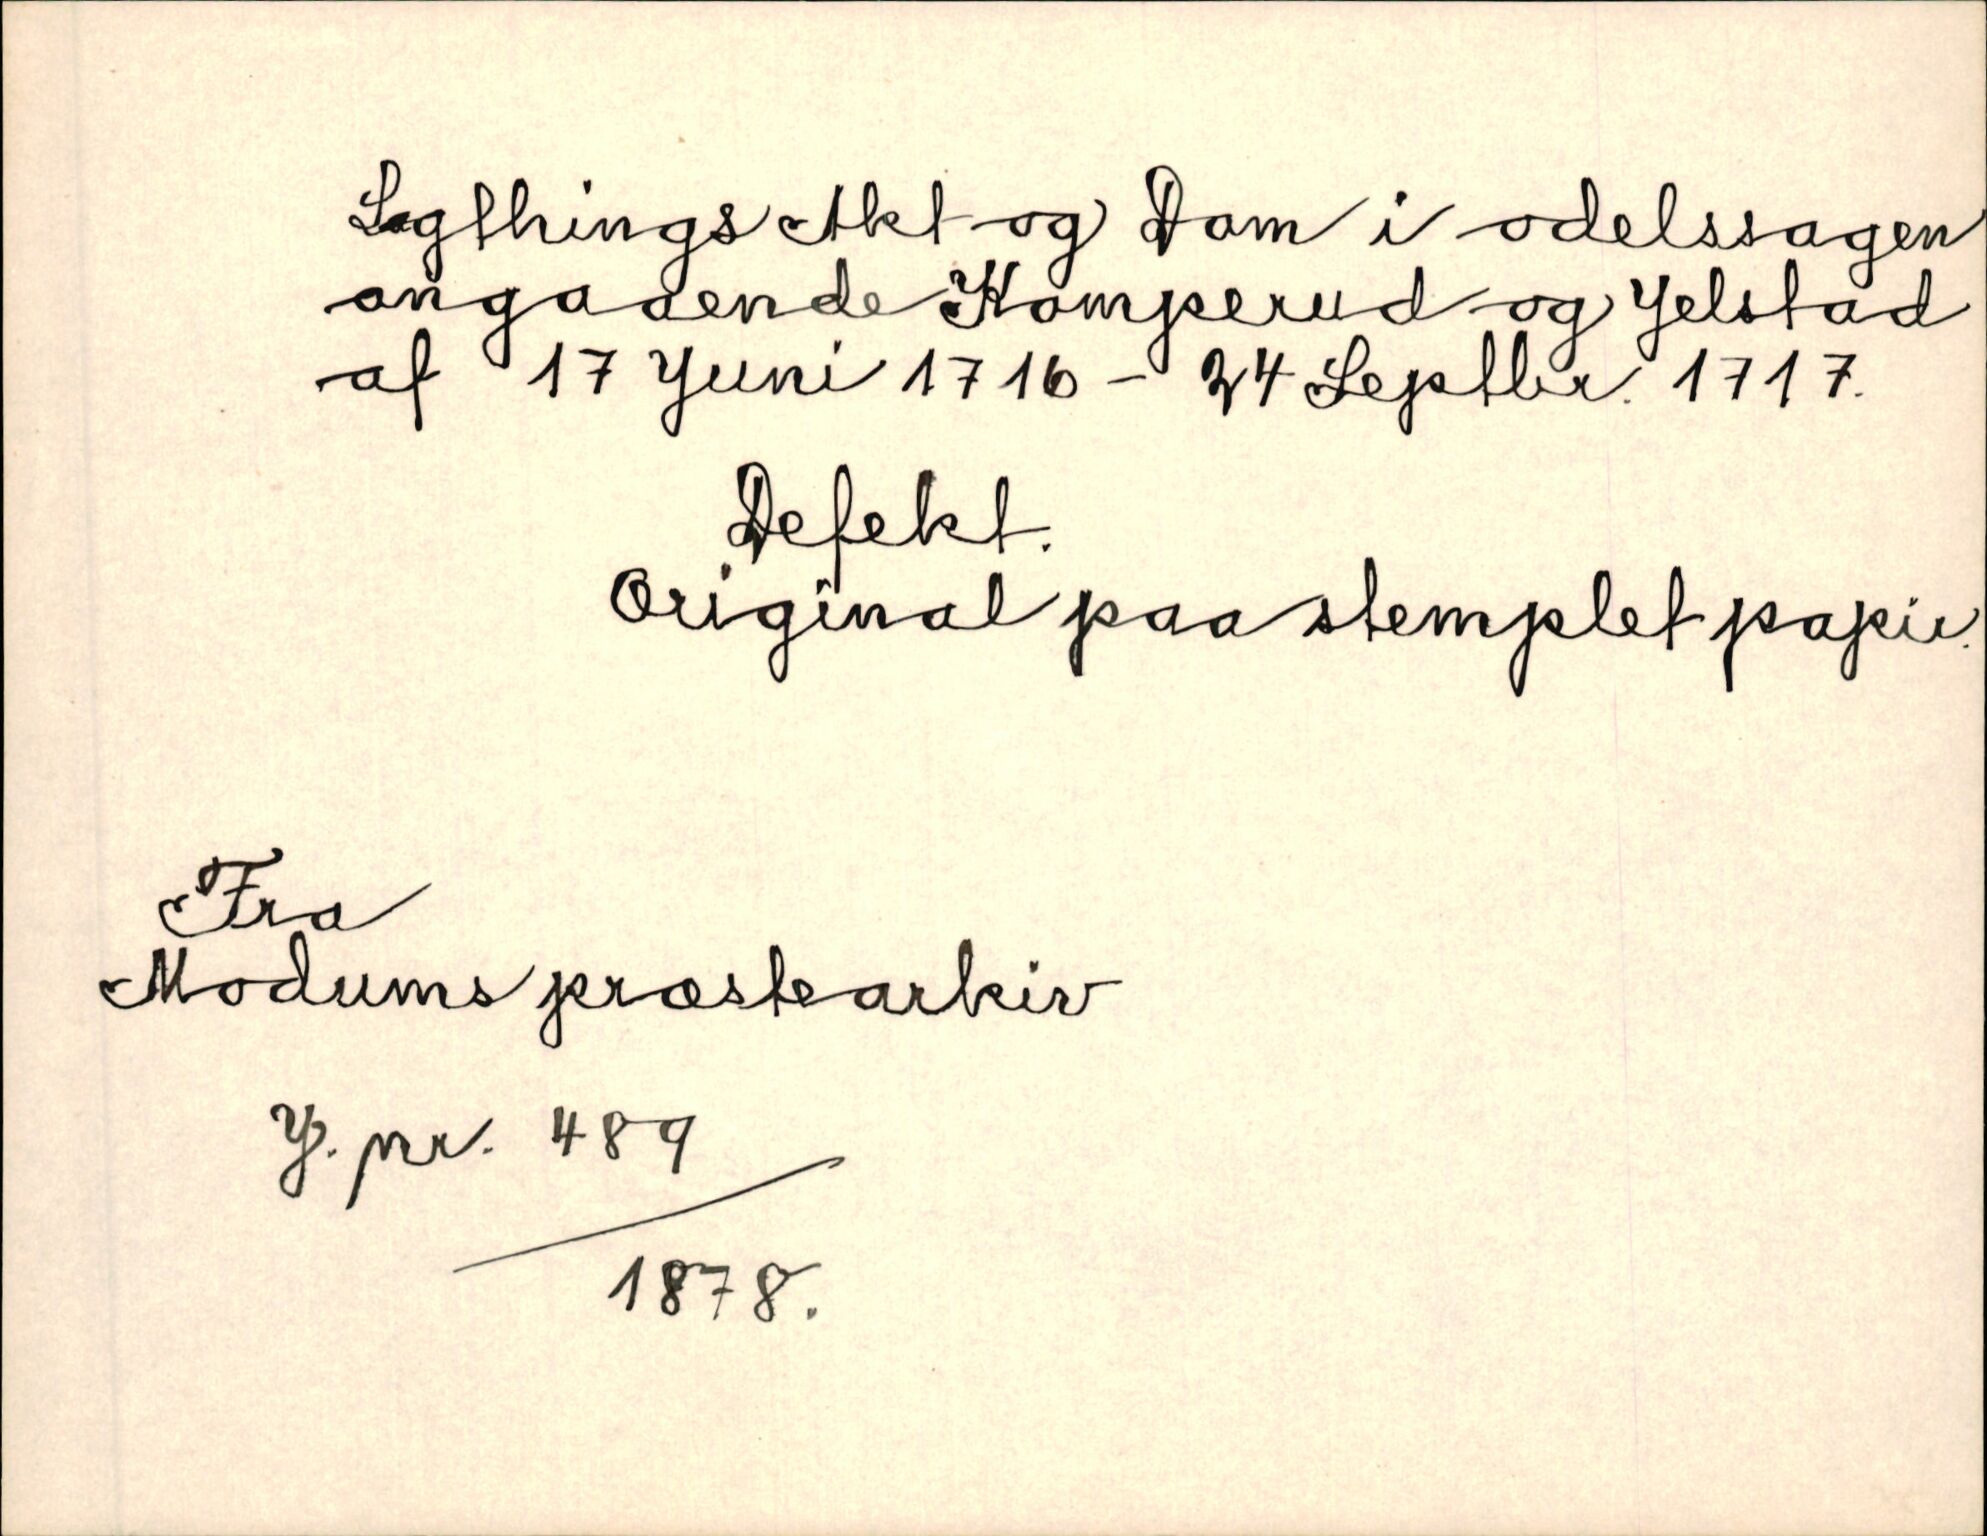 Lagthings Akt og Dom i odelssagen
angaaende Komperud og Jelstad
af 17 Juni 1716 - 24 Septbr. 1717.
Defekt.
Original paa stemplet papir.
Fra
Modums præstearkiv
J. nr. 489
1878.